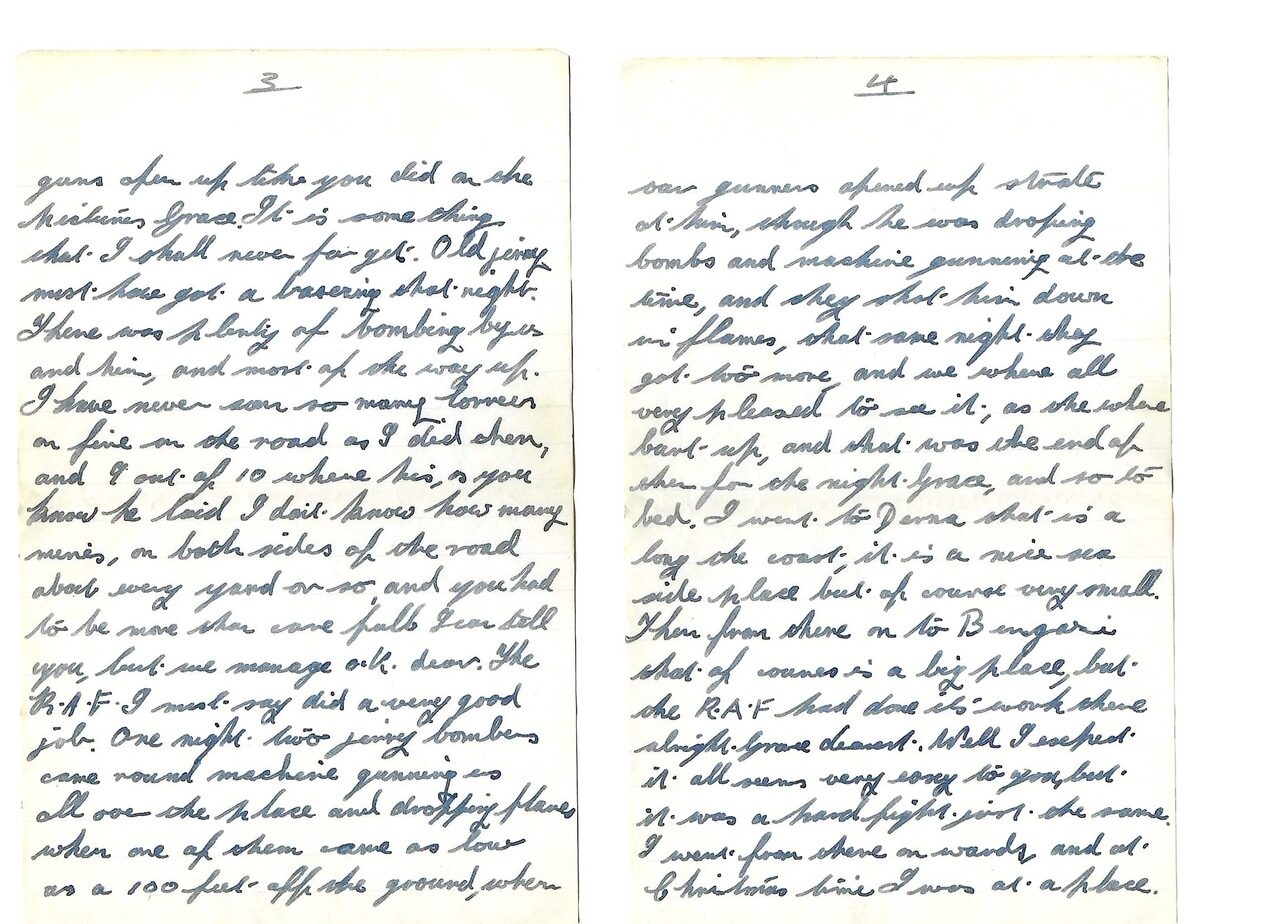 3
guns open up like you did on the
Pictures Grace. It is some thing
that I shall never for get. Old jerry
must have got a basezing that night.
There was plenty of bombing by us
and him, and most of the way up.
I have never saw so many lorrees
on fire on the road as I did then,
and 9 out of 10 where his, as you
know he laid I dont know how many
mines, on both sides of the road
about every yard or so, and you had
to be more than care full I can tell
you, but we manage o.K. dear. The
R.A.F. I must say did a very good
job. One night two jerry bombers
came round machine gunning us
all over the place and dropping flares
when one of them came as low
as a 100 feet off the ground, when
4
our gunners opened up strate
at him, though he was droping
bombs and machine gunning at the
time, and they shot him down
in flames, that same night they
got two more, and we where all
very pleased to see it, as the where
bant up, and that was the end of
then for the night Grace, and so to
bed. I went to Derna that is a
long the coast, it is a nice sea
side place but of course very small.
Then from there on to Bengazi
that of counes is a big place, but
the R.A.F had done its work there
alright Grace dearest. Well I exspect
it all seems very easy to you, but
it was a hard fight just the same.
I went from there on wards, and at
Christmas time I was at a place.